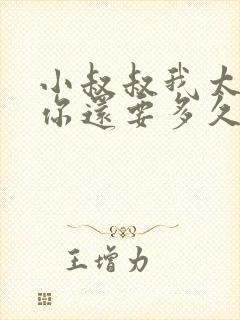 小叔叔我太
你還要多久
王增力